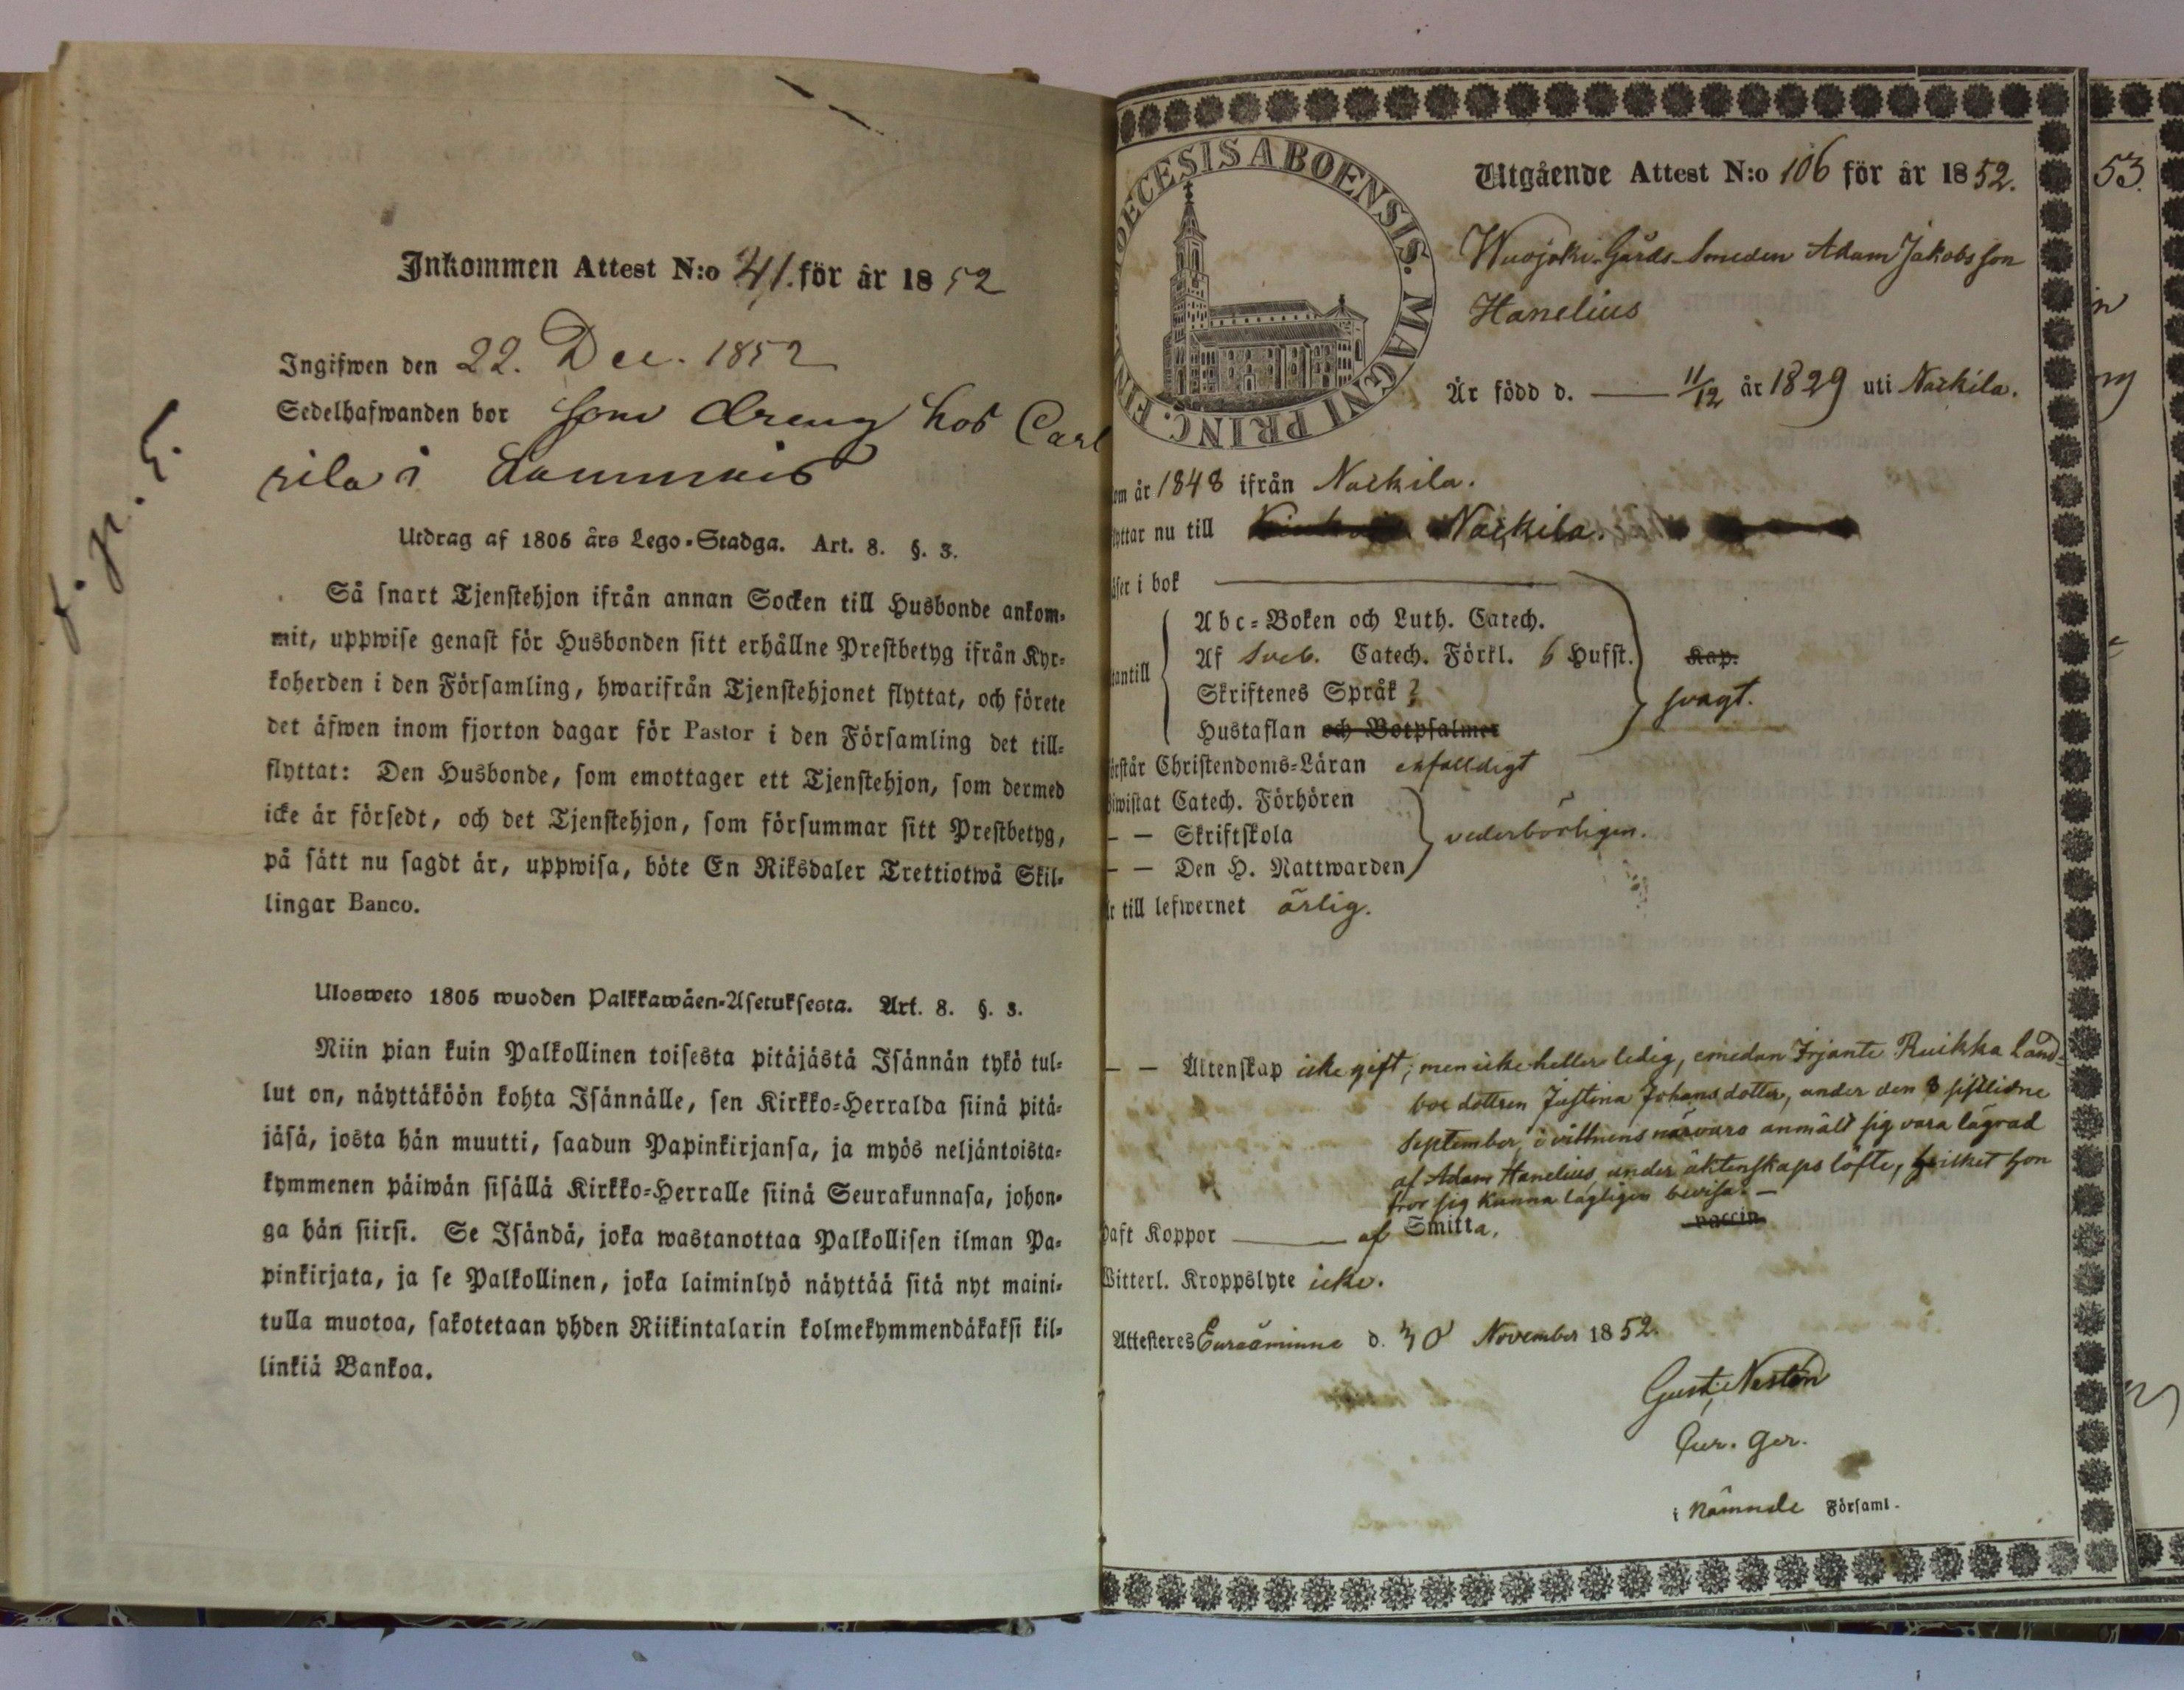 Inkommen Attest N:o 41. för år 1852
Ingifwen den 22. Dec. 1852
Sedelhafwanden bor som dreng hos Carl
rila i
f. p. 5.
Utdrag af 1805 års Lego-Stadga. Art. 8. §. 3.
Så snart Tjenstehjon ifrån annan Socken till Husbonde ankom-
mit, uppwise genast för Husbonden sitt erhållne Prestbetyg ifrån Kyr-
koherden i den Församling, hwarifrån Tjenstehjonet flyttat, och förete
det äfwen inom fjorton dagar för Pastor i den Församling det till-
flyttat: Den Husbonde, som emottager ett Tjenstehjon, som dermed
icke är försedt, och det Tjenstehjon, som försummar sitt Prestbetyg,
på sätt nu sagdt är, uppwisa, böte En Riksdaler Trettiotwå Skil-
lingar Banco.
Ulosweto 1805 wuoden Palkkawäen-Asetuksesta. Art. 8. §. 3.
Niin pian kuin Palkollinen toisesta pitäjästä Isännän tykö tul-
lut on, näyttäköön kohta Isännälle, sen Kirkko-Herralda siinä pitä-
jäsä, josta hän muutti, saadun Papinkirjansa, ja myös neljäntoista-
kymmenen päiwän sisällä Kirkko-Herralle siinä Seurakunnasa, johon-
ga hän siirsi. Se Isändä, joka wastanottaa Palkollisen ilman Pa-
pinkirjata, ja se Palkollinen, joka laiminlyö näyttää sitä nyt maini-
tulla muotoa, sakotetaan yhden Riikintalarin kolmekymmendäkaksi kil-
linkiä Bankoa.
DIOECESIS ABOENSIS. MAGNI PRINC. FINL.
Utgående Attest N:o 106 för år 1852.
Wuojoki Gårds Smeden Adam Jakobsson
Hanelius
Är född d. — 11/12 år 1829 uti Nackila.
om år 1848 ifrån Nackila.
lyttar nu till Nackila.
äser i bok
Abc-Boken och Luth. Catech.
Af Sveb. Catech. Förkl. 6 Hufst. Kap.
tantill
Skriftenes Språk ? svagt.
Hustaflan och Botpsalmer
örstår Christendoms-Läran enfalldigt
iwistat Catech. Förhören
— — Skriftskola vederbörligen.
— — Den H. Nattwarden
r till lefwernet ärlig.
— — Äktenskap icke gift, men icke heller ledig, emedan Irjante Ruikka Land-
boe dottren Justina Johansdotter, under den 8 sistlidne
September, i vittnens närvaro anmält sig vara lägrad
af Adam Hanelius under äktenskaps löfte, hvilket hon
tror sig kunna lagligen bevisa. —
haft Koppor — af Smitta, vaccin
Witterl. Kroppslyte icke.
Attesteres Euraåminne d. 30 November 1852.
Gust. Nestén
Cur. Ger.
i Nämnde Församl.
53.